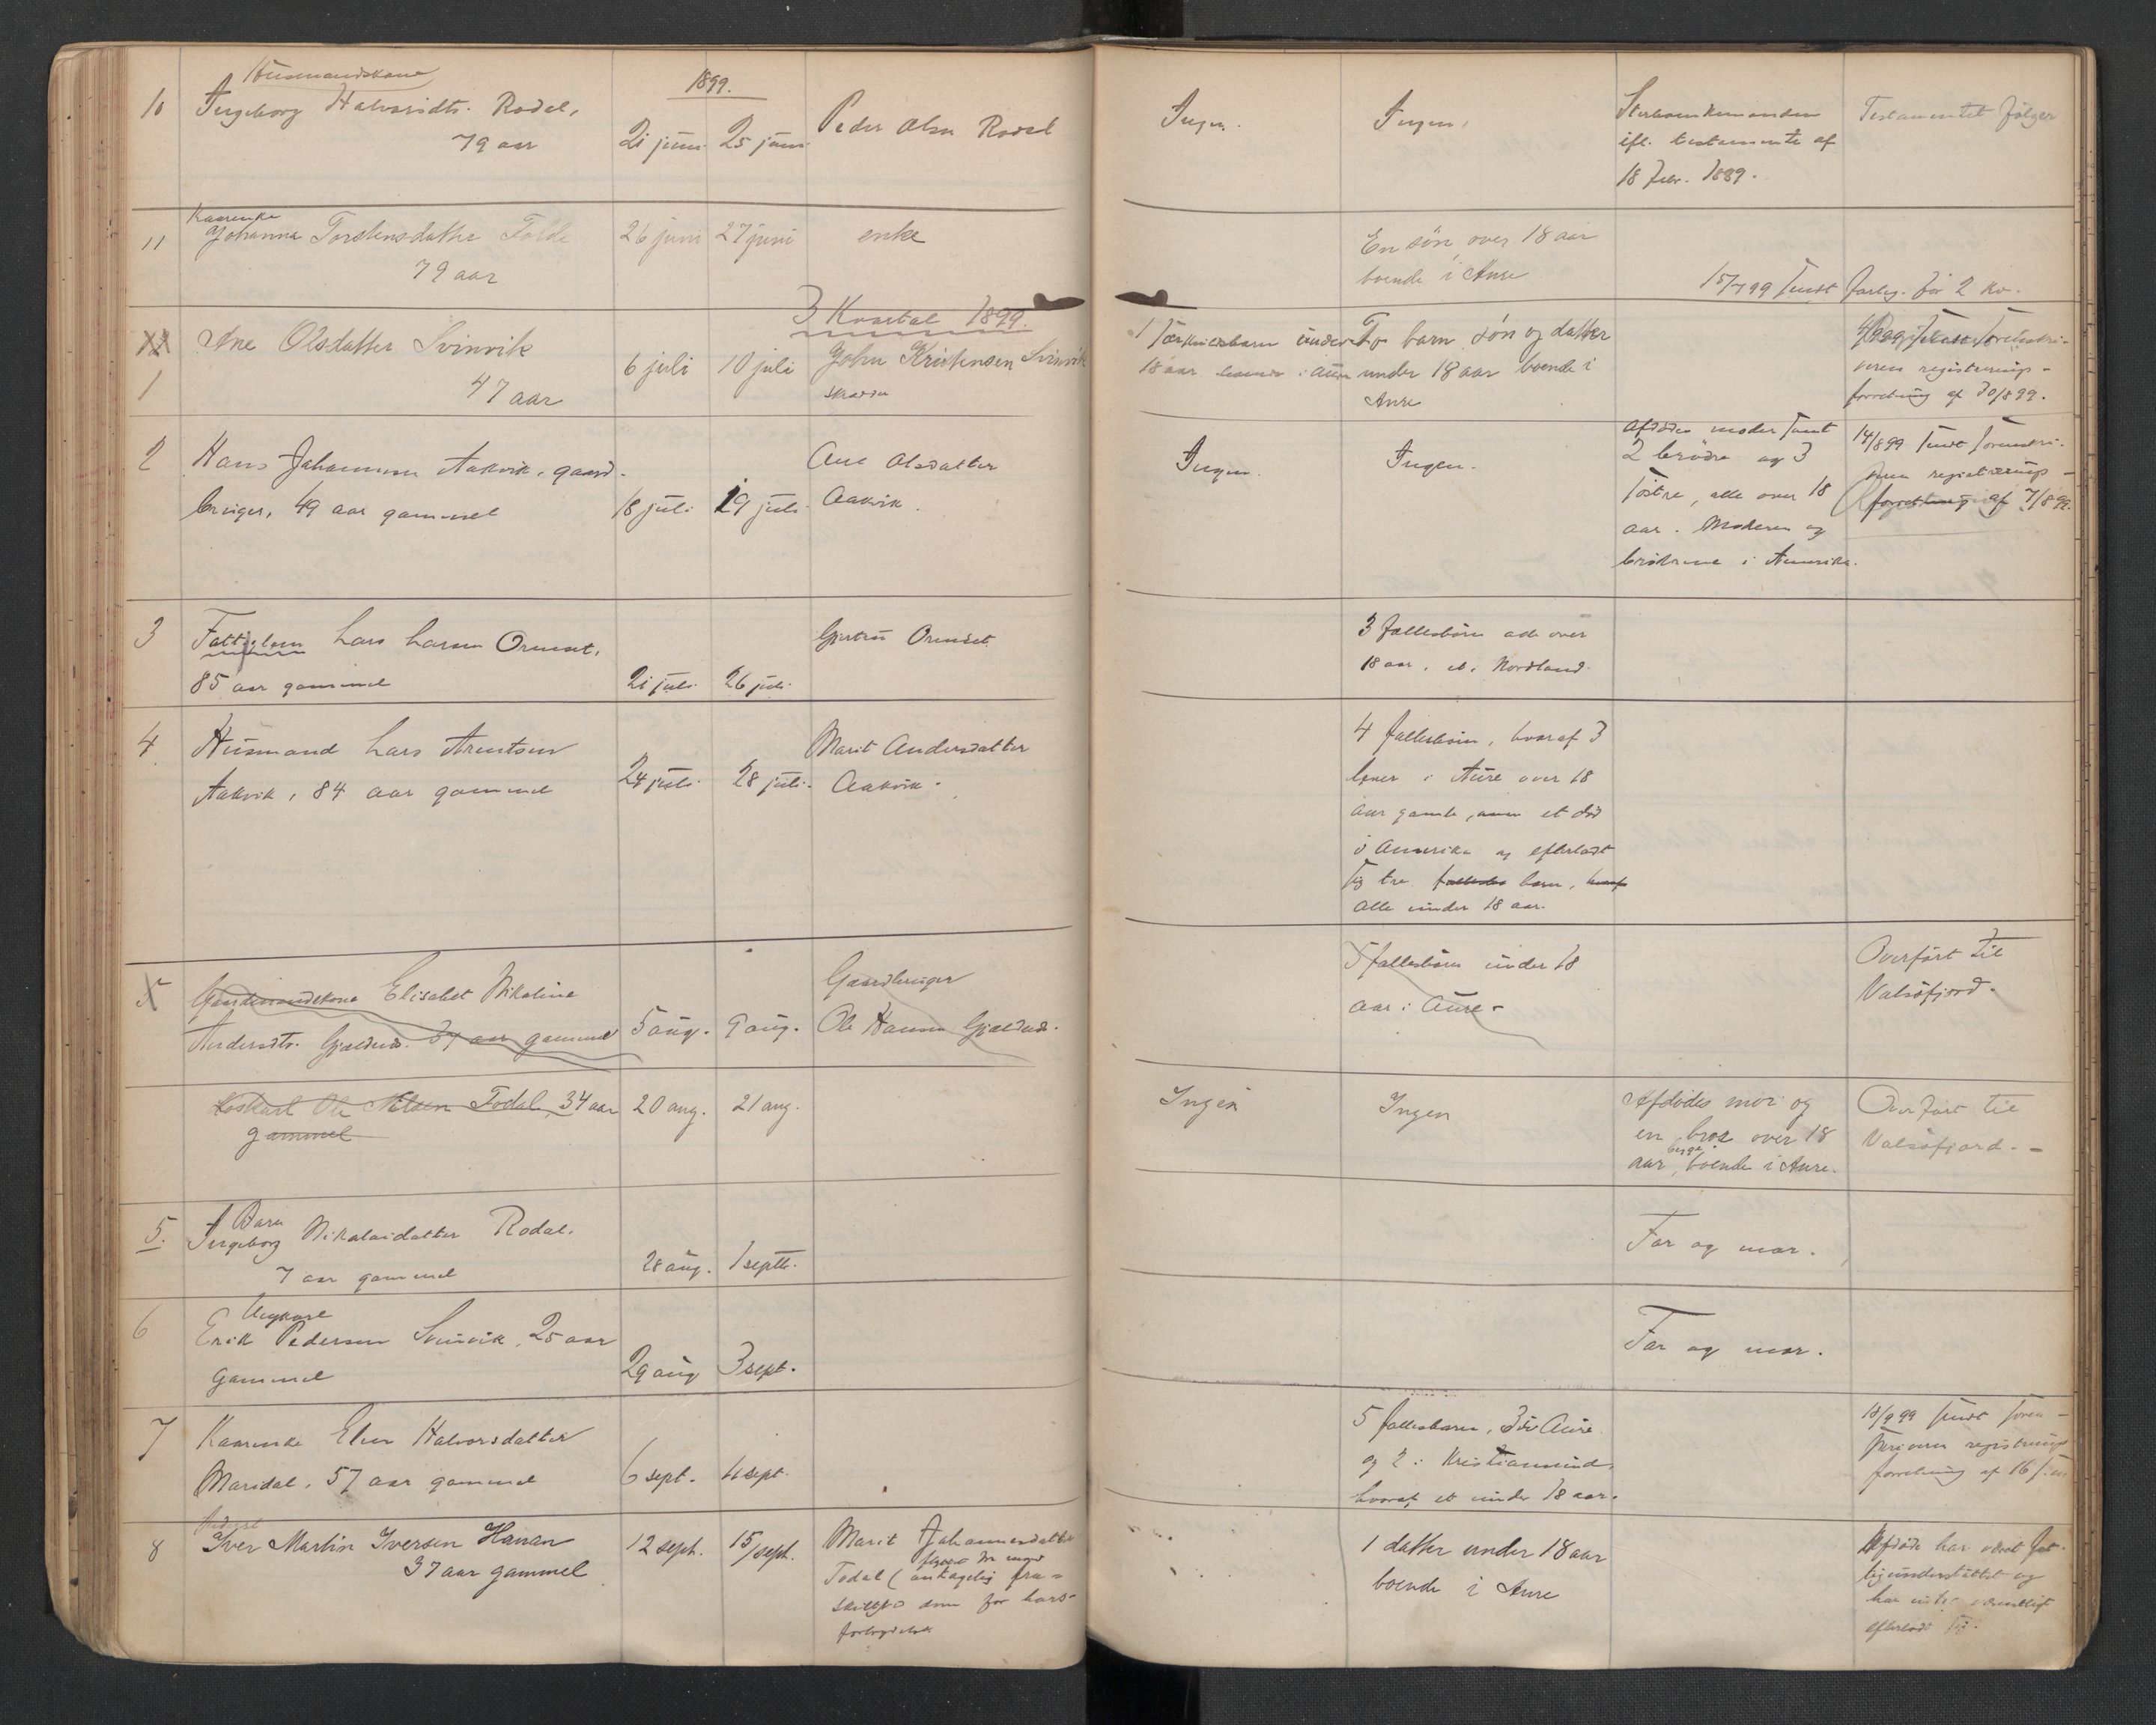 1899.
10
Husmandskone
Ingeborg Halvorsdtr. Rodal,
79 aar
21 juni 25 juni
Peder Olsen Rodal
Ingen.
Ingen.
Sterboenkemanden
ifl. testamente af
18 febr. 1889.
Testamentet følger
11
Kaarenke
Johanna Torstensdatter Tolde
79 aar
26 juni 27 juni
enke
En søn, over 18 aar
boende i Aure
15/7 99 sendt forteg. for 2 kv.
3 Kvartal 1899.
12
1
Ane Olsdatter Svinvik
47 aar
6 juli 10 juli
John Kristensen Svinvik
1 særkuldsbarn under
18 aar boende i Aure
To barn, søn og datter
under 18 aar boende i
Aure
registrerings-
forretning af 30/8 99.
2
Hans Johannessen Aakvik, gaard-
bruger, 49 aar gammel
18 juli 19 juli
Ane Olsdatter
Aakvik.
Ingen.
Ingen.
Afdødes moder samt
2 brødre og 3
søstre, alle over 18
aar. Moderen og
brødrene i Amerika.
14/8 99 sendt sorenskri-
veren registrerings-
forretning af 7/8 99.
3
Fattiglem Lars Larsen Ormset,
85 aar gammel
21 juli 26 juli
Gjertru Ormset
3 fællesbørn alle over
18 aar, et i Nordland.
4
Husmand Lars Arentsen
Aakvik, 84 aar gammel
24 juli 28 juli.
Marit Andersdatter
Aakvik.
4 fællesbørn, hvoraf 3
lever i Aure over 18
aar gamle, men et død
i Amerika og efterladt
sig tre fællesbø barn, hvoraf
alle under 18 aar.
5
Gaardmandskone Elisabet Nikoline
Andersdtr. Gjældnes. 34 aar gammel
5 aug. 9 aug.
Gaardbruger
Ole Hansen Gjældnes.
5 fællesbørn under 18
aar i Aure.
Overført til
Valsøfjord.
Løskarl Ole Nilsen Todal, 34 aar
gammel
20 aug. 21 aug.
Ingen
Ingen
Afdødes mor og
en bror over 18
aar, begge boende i Aure.
Overført til
Valsøfjord. -
5.
Barn
Ingeborg Nikolaidatter Rodal.
7 aar gammel
28 aug. 1 septb.
Far og mor.
6
Ungkarl
Erik Pedersen Svinvik, 25 aar
gammel
29 aug 3 sept.
Far og mor.
7
Kaarenke Elen Halvorsdatter
Maridal, 57 aar gammel
6 sept. 11 sept.
5 fællesbarn, 3 i Aure
og 2 i Kristiansund,
hvoraf et under 18 aar.
18/9 99 sendt soren-
skriveren registrerings
forretning af 16 s.m.
8
Iver Martin Iversen Hanan
37 aar gammel
12 sept. 15/sept.
Marit Johannesdatter
Todal (antagelig fra-
skilt ved dom for hors-
forbrydelse
1 datter under 18 aar
boende i Aure
Afdøde har været fat-
tigunderstøttet og
har intet væsentligt
efterladt sig.